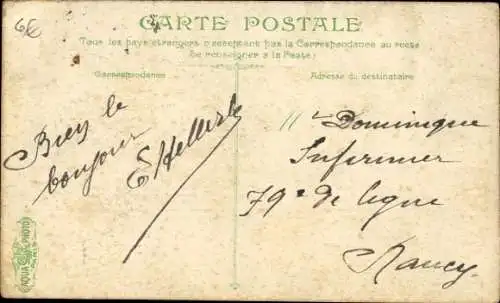 6€
CARTE POSTALE
Tous les pays étrangers n'acceptent pas la Correspondance au recto
(Se renseigner à la Poste)
Correspondance
Adresse du destinataire
Bien le
bonjour
Mr Dominique
Infirmier
79e de ligne
Nancy
AQUA PHOTO
PARIS